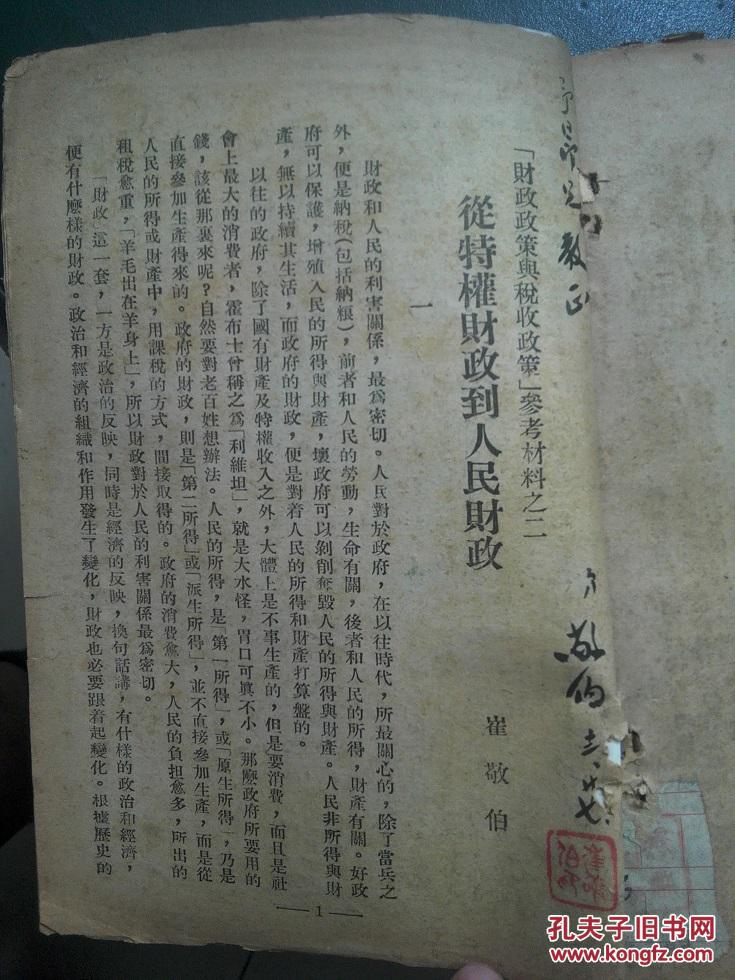 「財政政策與稅收政策」參考材料之二
從特權財政到人民財政
崔敬伯
一
財政和人民的利害關係，最爲密切。人民對於政府，在以往時代，所最關心的，除了當兵之
外，便是納稅（包括納粮），前者和人民的勞動，生命有關，後者和人民的所得，財產有關。好政
府可以保護，增殖人民的所得與財產，壞政府可以剝削奪毀人民的所得與財產。人民非所得與財
產，無以持續其生活，而政府的財政，便是對着人民的所得和財產打算盤的。
以往的政府，除了國有財產及特權收入之外，大體上是不事生產的，但是要消費，而且是社
會上最大的消費者，霍布士曾稱之爲「利維坦」，就是大水怪，胃口可眞不小。那麽政府所要用的
錢，該從那裏來呢？自然要對老百姓想辦法。人民的所得，是「第一所得」，或「原生所得」，乃是
直接參加生產得來的。政府的財政，則是「第二所得」或「派生所得」，並不直接參加生產，而是從
人民的所得或財產中，用課稅的方式，間接取得的。政府的消費愈大，人民的負担愈多，所出的
租稅愈重，「羊毛出在羊身上」，所以財政對於人民的利害關係最爲密切。
「財政」這一套，一方是政治的反映，同時是經濟的反映，換句話講，有什樣的政治和經濟，
便有什麽樣的財政。政治和經濟的組織和作用發生了變化，財政也必要跟着起變化。根據歷史的
— 1 —
教正
敬伯
孔夫子旧书网
www.kongfz.com